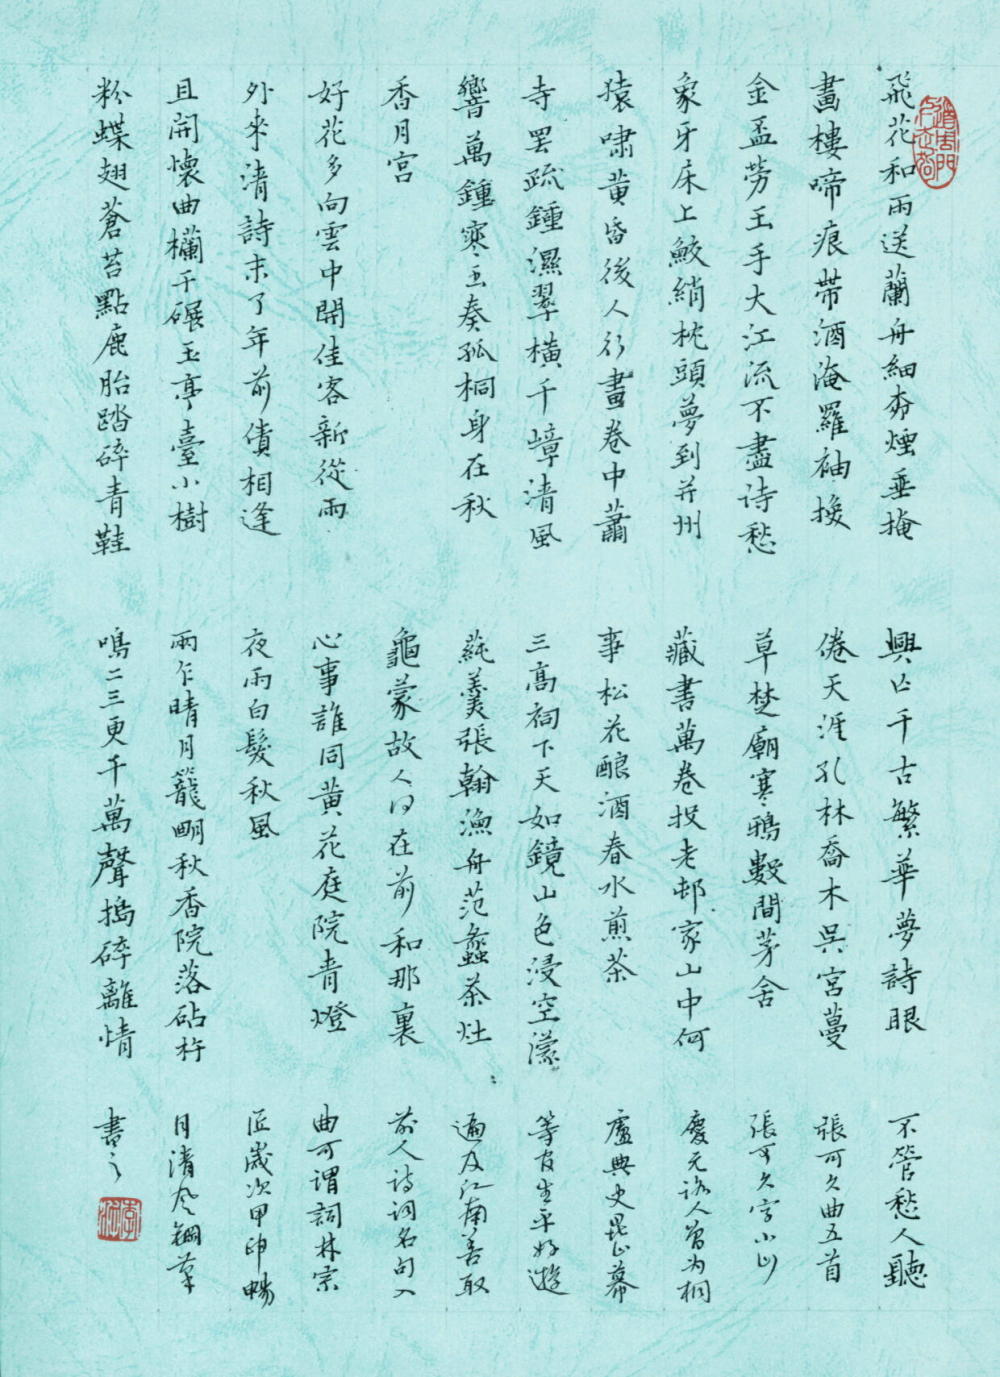 飛花和雨送蘭舟細夯煙垂掩
畫樓啼痕帶酒淹羅袖換
金盃勞玉手大江流不盡诗愁
象牙床上鮫綃枕頭夢到并州
猿嘯黄昏後人行畫卷中蕭
寺罢疏鍾濕翠橫千嶂清風
響萬鍾寒玉奏孤桐身在秋
香月宫
好花多向雲中開佳客新從雨
外來清詩未了年前債相逢
且開懷曲欄干碾玉亭臺小樹
粉蝶翅蒼苔點鹿胎踏碎青鞋
興亡千古繁華夢詩眼
倦天涯孔林喬木吳宮蔓
草楚廟寒鴉數間茅舍
藏書萬卷投老邨家山中何
事松花釀酒春水煎茶
三高祠下天如鏡山色浸空濛
蒓羹張翰漁舟范蠡茶灶
龜蒙故人何在前和那裏
心事誰同黄花庭院青燈
夜雨白髮秋風
雨乍晴月籠明秋香院落砧杵
鳴二三更千萬聲搗碎離情
不管愁人聽
張可久曲五首
張可久字小山
慶元路人曾为桐
廬典史昆山幕
等官生平好遊
遍及江南善取
前人诗词名句入
曲可谓詞林宗
匠歲次甲申暢
月清风鋼筆
書之